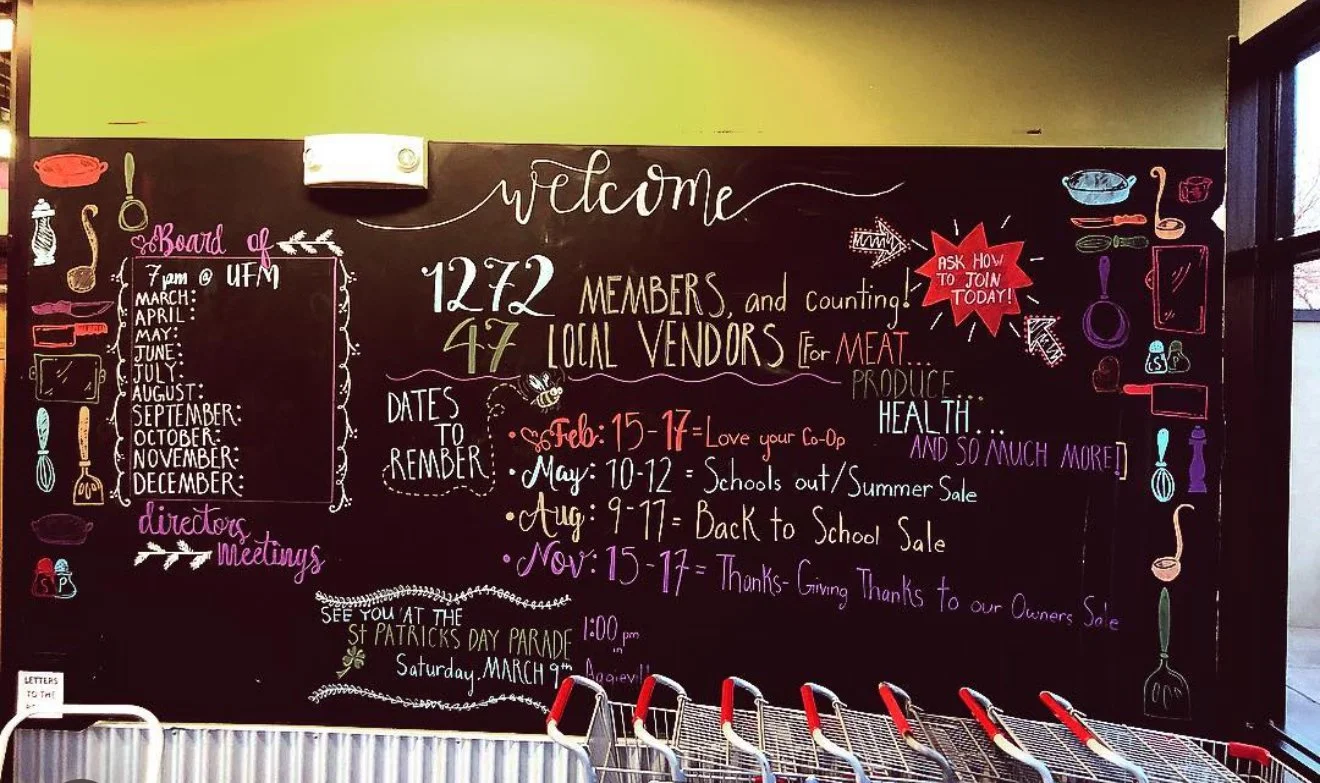 welcome
Board of
7am @ UFM
MARCH:
APRIL:
MAY:
JUNE:
JULY:
AUGUST:
SEPTEMBER:
OCTOBER:
NOVEMBER:
DECEMBER:
directors
Meetings
1272 MEMBERS, and counting!
47 LOCAL VENDORS [For MEAT...
PRODUCE...
HEALTH...
AND SO MUCH MORE!]
ASK HOW
TO JOIN
TODAY!
DATES
TO
REMBER
• Feb: 15-17 = Love your Co-Op
• May: 10-12 = Schools out/Summer Sale
• Aug: 9-17 = Back to School Sale
• Nov: 15-17 = Thanks-Giving Thanks to our Owners Sale
SEE YOU AT THE
St PATRICKS DAY PARADE
Saturday, MARCH 9th
1:00 pm
in
S P
S P
LETTERS
TO THE